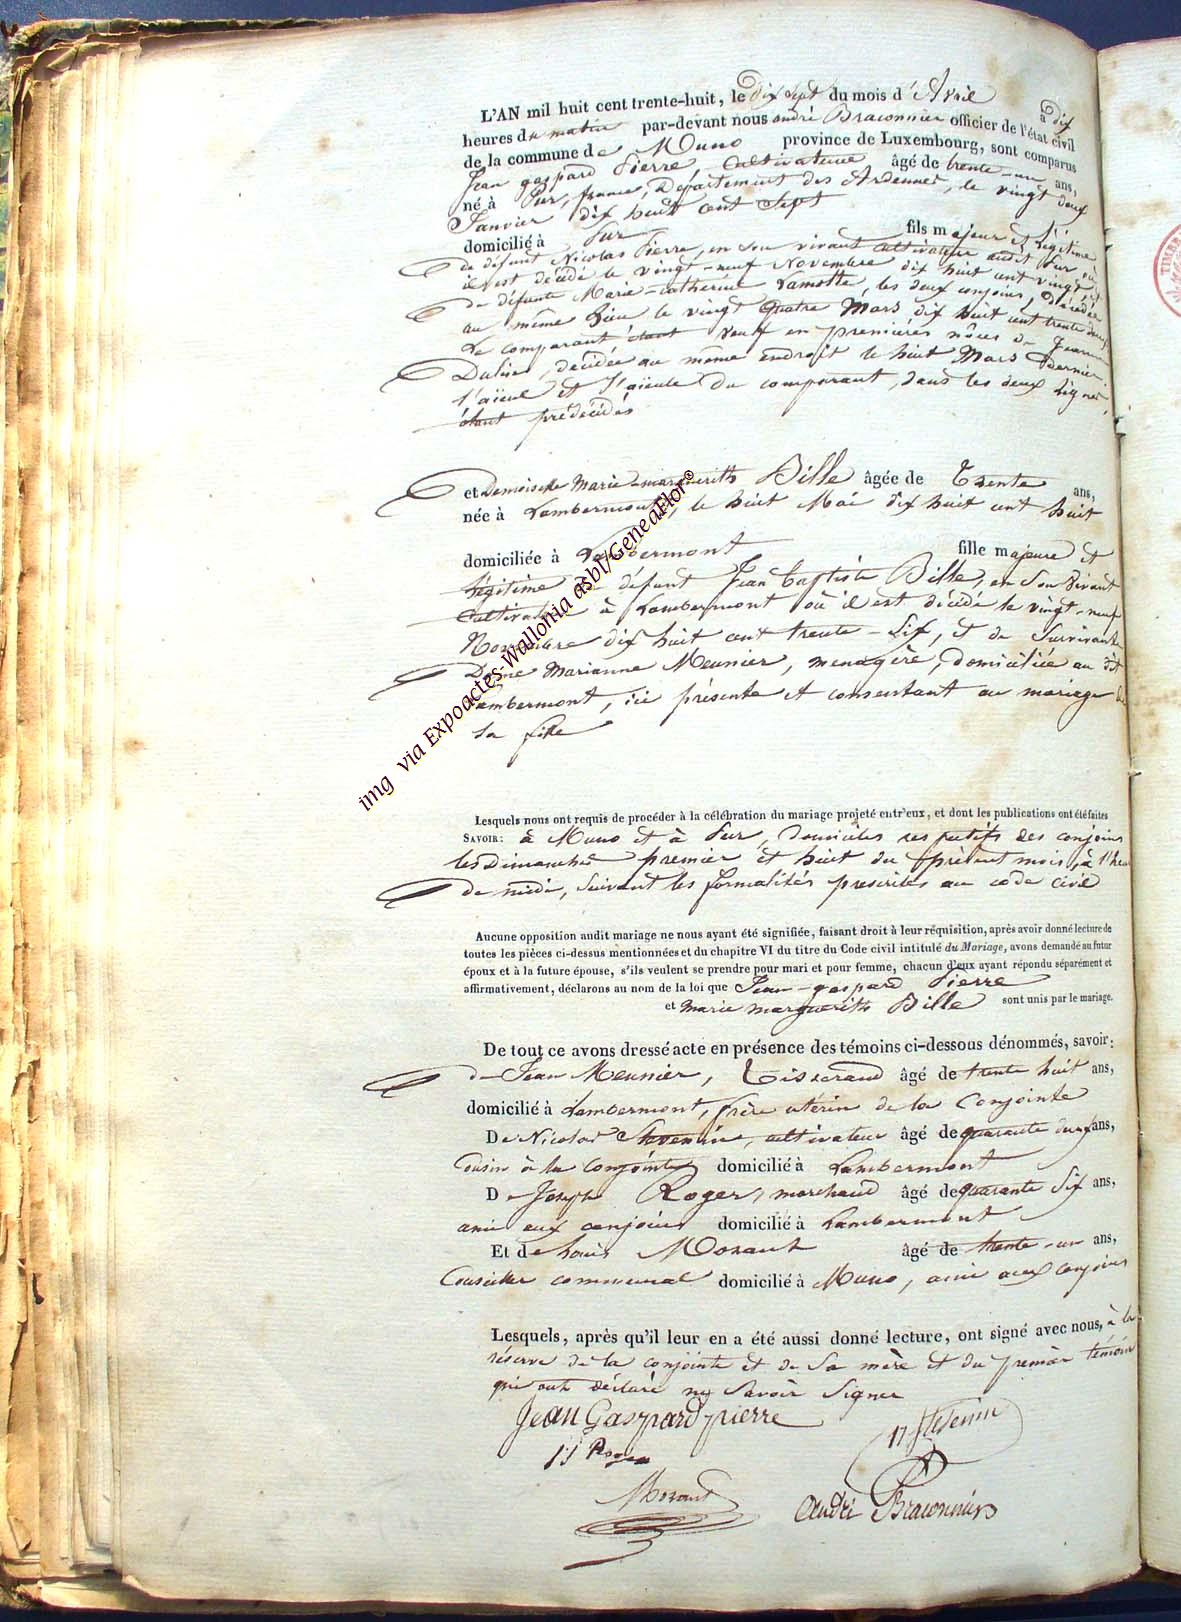 L'AN mil huit cent trente-huit, le dix sept du mois d'Avril à dix
heures du matin par-devant nous andré Braconnier officier de l'état civil
de la commune de Muno province de Luxembourg, sont comparus
Jean gaspard Pierre Cultivateur âgé de trente-un ans,
né à Pur, france, Département des Ardennes, le vingt deux
Janvier dix huit cent Sept
domicilié à Pur fils majeur et légitime
de défunt Nicolas Pierre, en son vivant Cultivateur audit Pur où
il est décédé le vingt-neuf Novembre dix huit cent vingt, et
de défunte Marie-catherine Lamotte, les deux conjoins, décédée
au même lieu le vingt quatre Mars dix huit cent trente deux
Le comparant étant veuf en premières nôces de Jeanne
décédée au même endroit le huit Mars dernier
l'aïeul et l'aïeule du comparant, dans les deux lignes,
étant prédécédés
et Demoiselle Marie-marguerith Bille âgée de Trente ans,
née à Lambermont, le huit Mai dix huit cent huit
domiciliée à Lambermont fille majeure et
légitime de défunt Jean baptiste Bille, en son vivant
Cultivateur à Lambermont où il est décédé le vingt-neuf
Novembre dix huit cent trente-six, et de Survivante
Dame Marianne Meunier, menagère, domiciliée au dit
Lambermont, ici présente et consentant au mariage de
sa fille
img via Expoactes-Wallonia asbl/GeneaFlor©
Lesquels nous ont requis de procéder à la célébration du mariage projeté entr'eux, et dont les publications ont été faites
SAVOIR: à Muno et à Pur, Domiciles respectifs des conjoins
les Dimanches premier et huit du présent mois, à l'heure
de midi, suivant les formalités prescrites au code civil
Aucune opposition audit mariage ne nous ayant été signifiée, faisant droit à leur réquisition, après avoir donné lecture de
toutes les pièces ci-dessus mentionnées et du chapitre VI du titre du Code civil intitulé du Mariage, avons demandé au futur
époux et à la future épouse, s'ils veulent se prendre pour mari et pour femme, chacun d'eux ayant répondu séparément et
affirmativement, déclarons au nom de la loi que Jean-gaspard Pierre
et Marie marguerith Bille sont unis par le mariage.
De tout ce avons dressé acte en présence des témoins ci-dessous dénommés, savoir:
de Jean Meunier, Tisserand âgé de trente huit ans,
domicilié à Lambermont, frère utérin de la Conjointe
De Nicolas Thevenin, cultivateur âgé de quarante deux ans,
Cousin à la conjointe domicilié à Lambermont
De Joseph Roger, marchand âgé de quarante six ans,
ami aux conjoins domicilié à Lambermont
Et de Louis Morant âgé de trente-un ans,
Conseiller communal domicilié à Muno, ami aux conjoins
Lesquels, après qu'il leur en a été aussi donné lecture, ont signé avec nous, à la
réserve de la conjointe et de Sa mère et du premier témoin
qui ont déclaré ny Savoir Signer
Jean Gaspard pierre
Roger
Morant
André Braconnier
TIMBRE